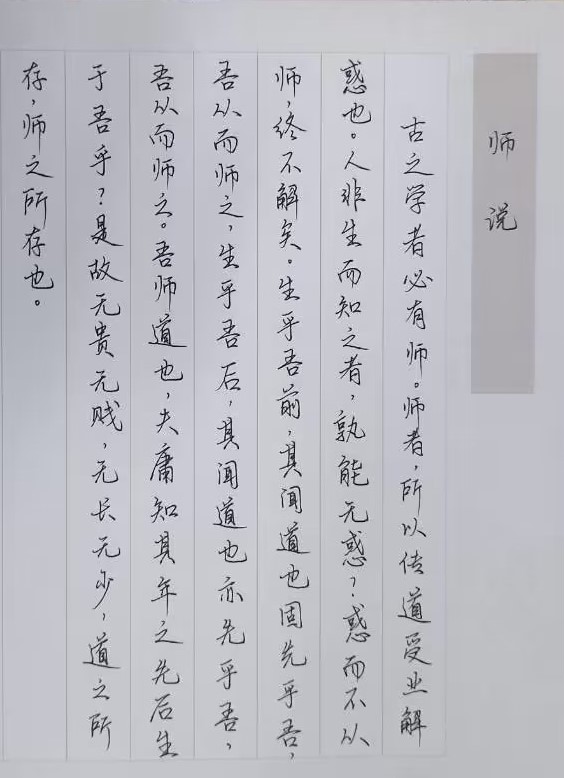 师说
古之学者必有师。师者，所以传道受业解
惑也。人非生而知之者，孰能无惑？惑而不从
师，终不解矣。生乎吾前，其闻道也固先乎吾，
吾从而师之，生乎吾后，其闻道也亦先乎吾，
吾从而师之。吾师道也，夫庸知其年之先后生
于吾乎？是故无贵无贱，无长无少，道之所
存，师之所存也。